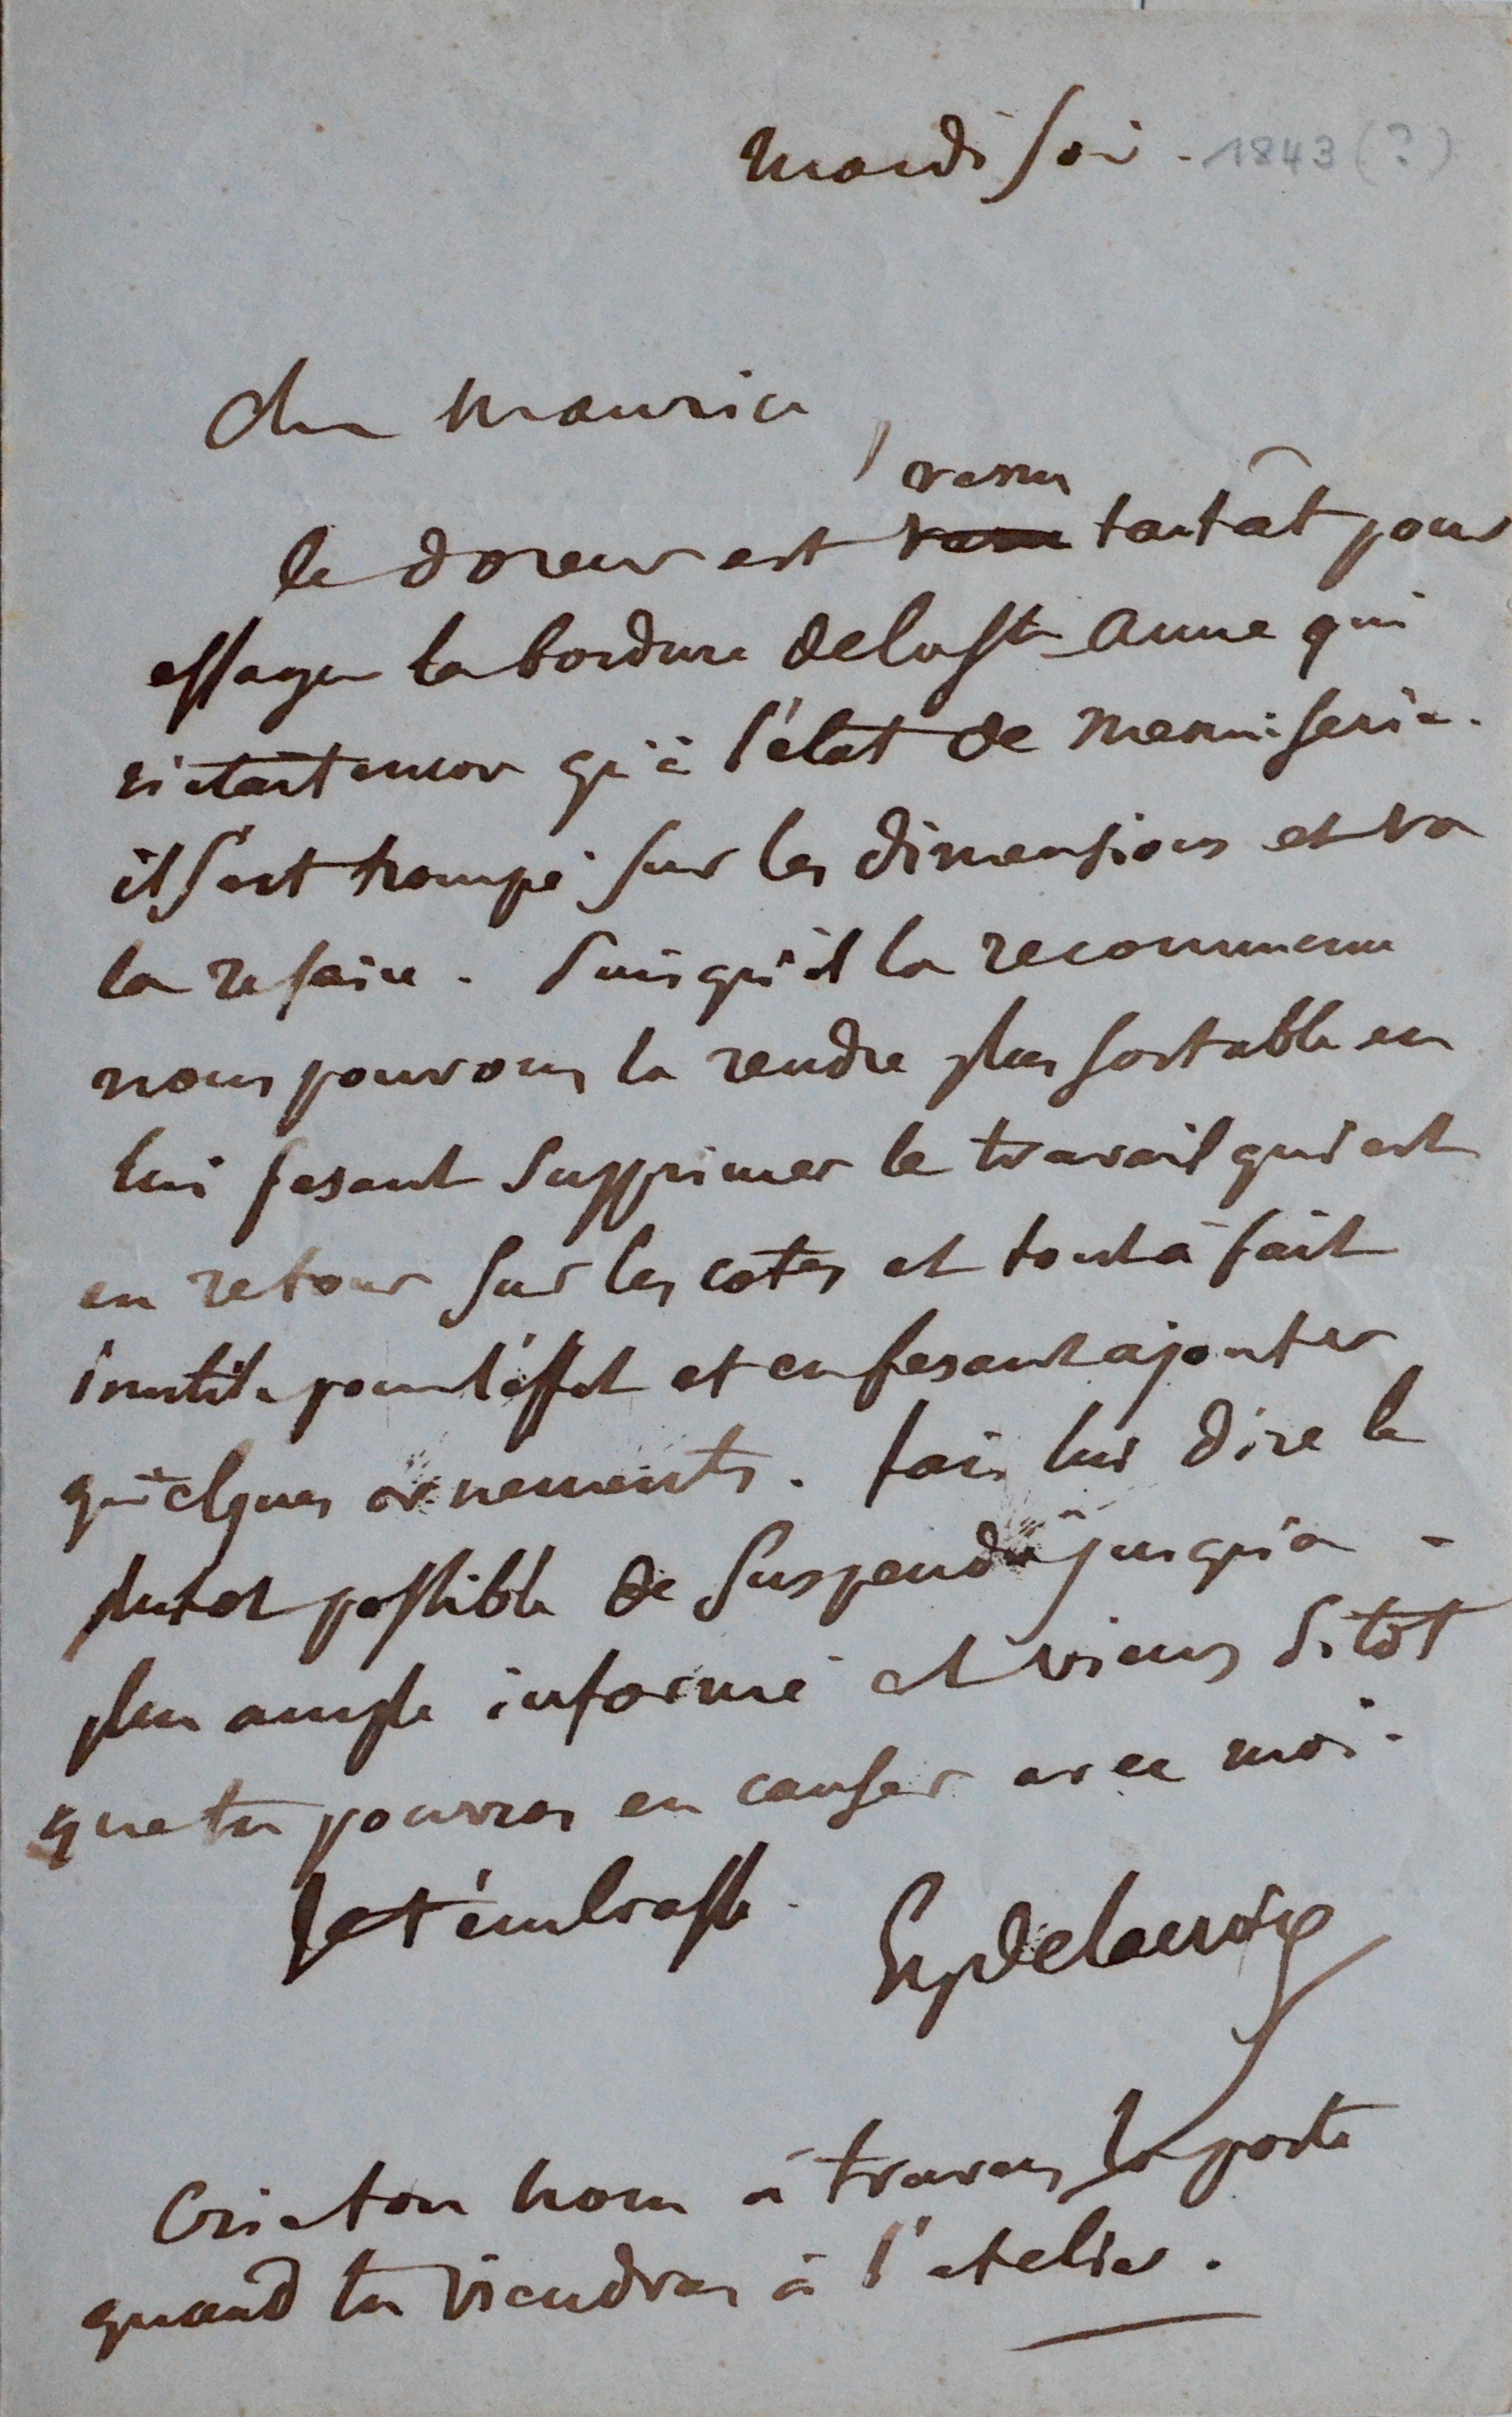 mardi soir. 1843 (?)
cher Maurice,
venu
le doreur est venu tantôt pour
essayer la bordure de la Ste Anne qui
n'etait encor qu'à l'état de menuiserie.
il s'est trompé sur les dimensions et va
la refaire. Puisqu'il la recommence
nous pouvons la rendre plus sortable en
lui fesant supprimer le travail qui est
en retour sur les cotés et tout à fait
inutile pour l'effet et en fesant ajouter
quelques ornements. fais lui dire le
plutot possible de suspendre jusqu'a
plus ample informé et viens sitôt
que tu pourras en causer avec moi.
Je t'embrasse.
Eug Delacroix
Crie ton nom à travers la porte
quand tu viendras à l'atelier.